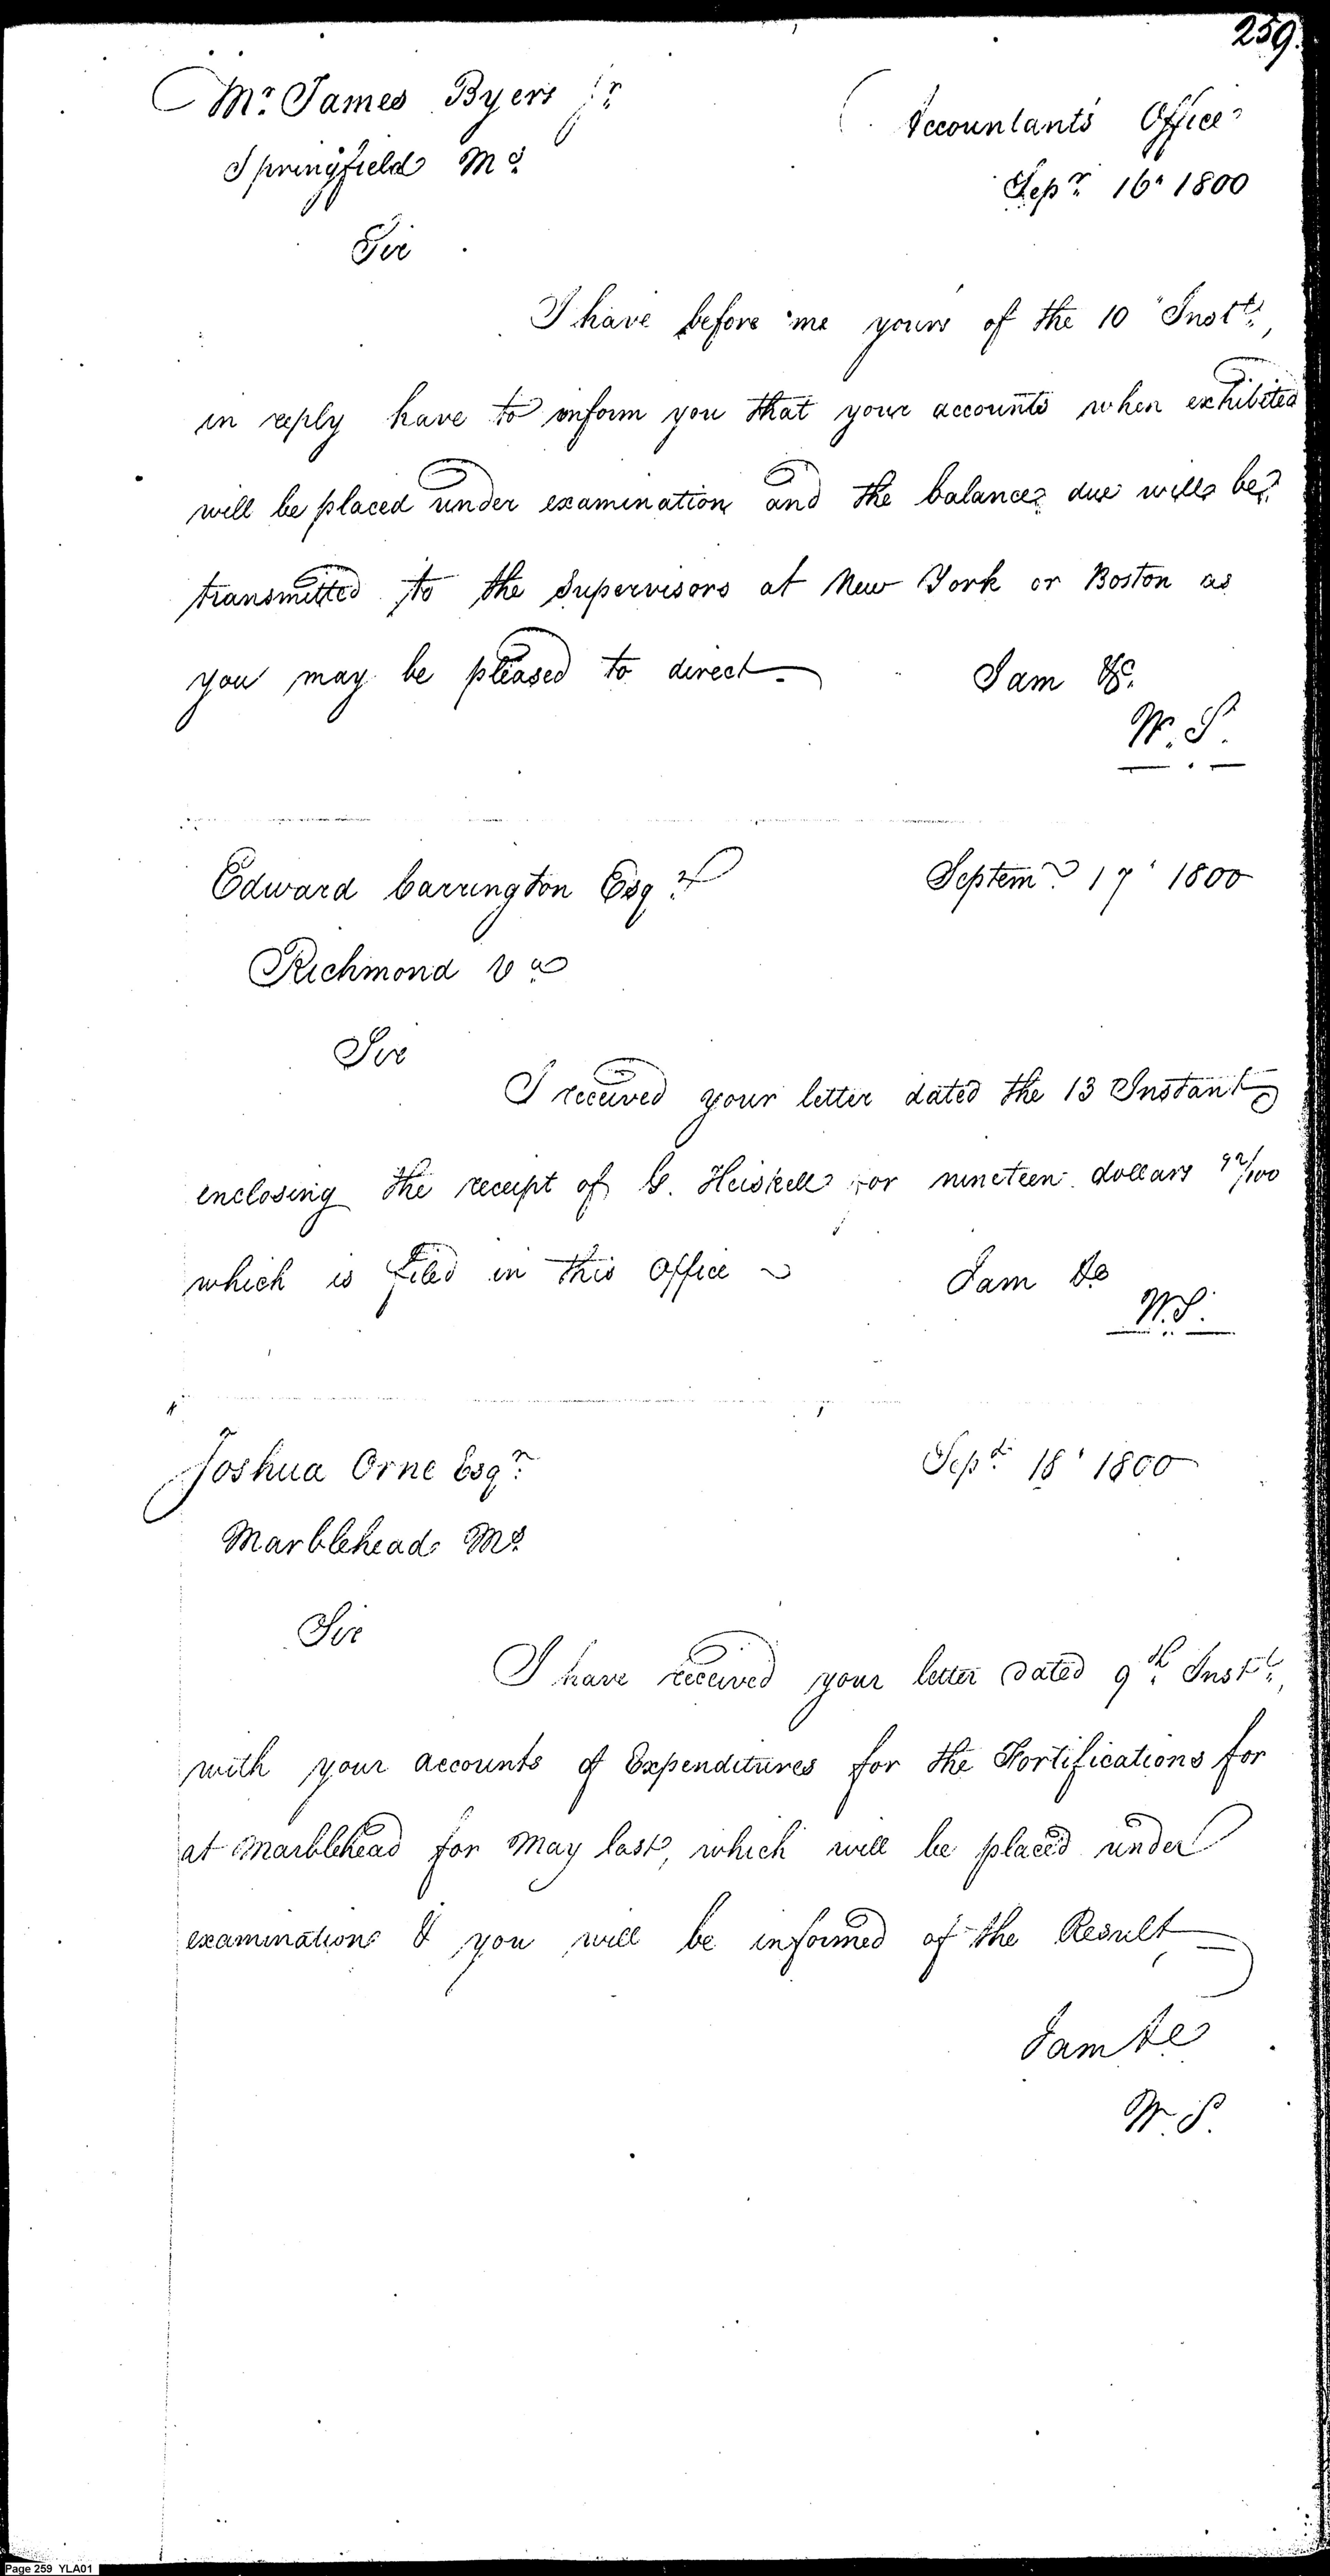 259.
Mr. James Byers Jr.
Accountant's Office
Springfield Ms.
Sepr. 16. 1800
Sir
I have before me yours of the 10 Instt.,
in reply have to inform you that your accounts when exhibited
will be placed under examination and the balance due will be
transmitted to the Supervisors at New York or Boston as
you may be pleased to direct.
I am &c.
W. S.
Edward Carrington Esqr.
Septemr. 17. 1800
Richmond Va
Sir
I received your letter dated the 13 Instant
enclosing the receipt of G. Heiskell for nineteen dollars 92/100
which is filed in this Office
I am &c
W. S.
Joshua Orne Esqr.
Sepr. 18. 1800
Marblehead Ms.
Sir
I have received your letter dated 9th. Instt.,
with your accounts of Expenditures for the Fortifications for
at Marblehead for May last, which will be placed under
examination & you will be informed of the Result
I am &c
W. S.
Page 259 YLA01